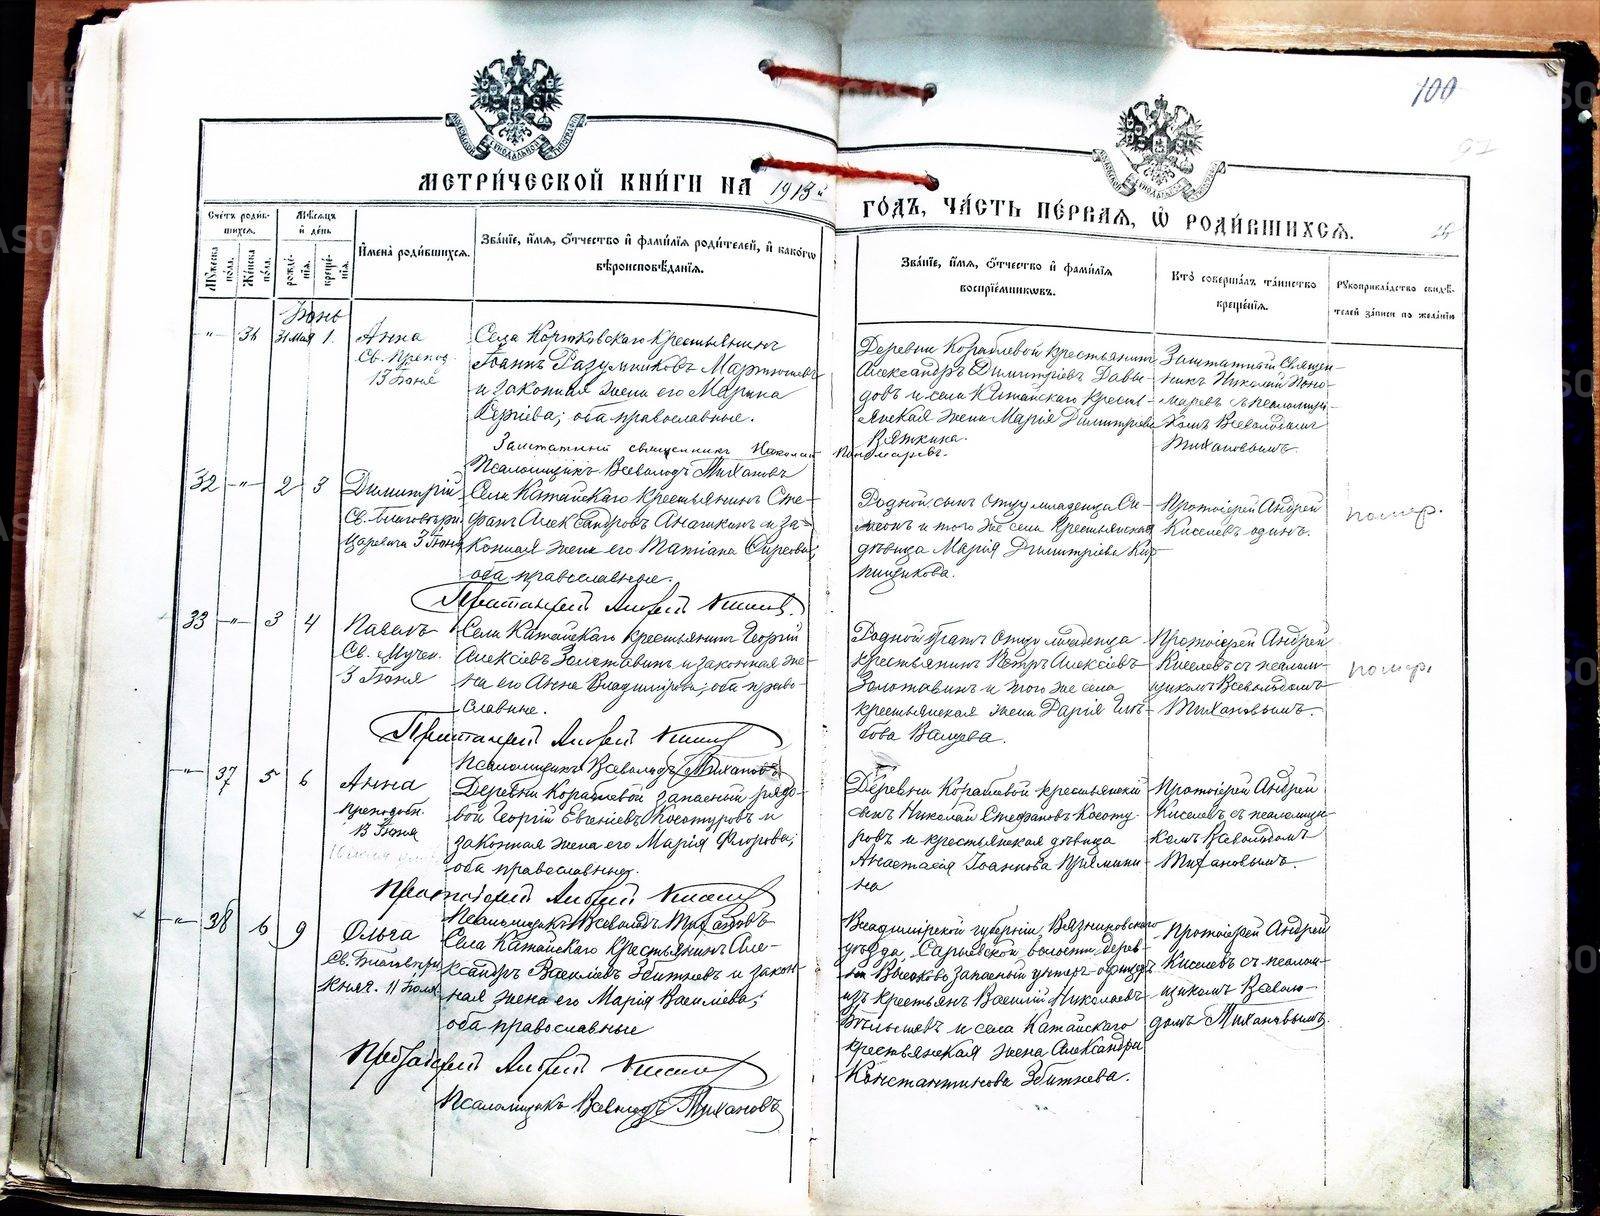 100
МЕТРИЧЕСКОЙ КНИГИ НА 1913й
ГОДЪ, ЧАСТЬ ПЕРВАЯ, Ѡ РОДИВШИХСѦ.
Счетъ родив-
шихсѧ.
Мужеска пола.
Женска пола.
Мѣсѧцъ
и день
рожде-
нїѧ.
креще-
нїѧ.
Имена родившихсѧ.
Званїе, имѧ, ѻтчество и фамилїѧ родителей, и какогѡ
вѣроисповѣданїѧ.
Званїе, имѧ, ѻтчество и фамилїѧ
воспрїемниковъ.
Кто совершалъ таинство
крещенїѧ.
Рукоприкладство свидѣ-
телей записи по желанїю
Іюнь
-"- 36 31 мая 1.
Анна
Св. Препод.
13 Іюня
крестьянинъ
Іоаннъ Разумниковъ
и законная жена его Марина
Сергіева; оба православные.
Заштатный священникъ Николай Пономаревъ.
Псаломщикъ Всеволодъ Тихановъ
Деревни Кораблевой крестьянинъ
Александръ Димитріевъ Давы-
довъ и села Катайскаго кресть-
янская жена Марія Димитріева
Вяткина.
Заштатный Священ-
никъ Николай Поно-
маревъ съ псаломщи-
комъ Всеволодомъ
Тихановымъ.
32 -"- 2 3
Димитрій
Св. Благовѣрн.
Царевича 3 Іюня
Села Катайскаго крестьянинъ Сте-
фанъ Александровъ и за-
конная жена его Татіана
оба православные.
Протоіерей Андрей Киселевъ.
Родной сынъ отцу младенца Си-
меонъ и того же села крестьянская
дѣвица Марія Димитріева Кир-
пищикова.
Протоіерей Андрей
Киселевъ одинъ.
помер.
33 -"- 3 4
Павелъ
Св. Мучен.
3 Іюня
Села Катайскаго крестьянинъ Георгій
Алексіевъ Золотавинъ и законная же-
на его Анна Владимірова; оба право-
славные.
Протоіерей Андрей Киселевъ
Псаломщикъ Всеволодъ Тихановъ
Родной братъ отцу младенца
крестьянинъ Петръ Алексіевъ
Золотавинъ и того же села
крестьянская жена Дарія
Протоіерей Андрей
Киселевъ съ псалом-
щикомъ Всеволодомъ
Тихановымъ.
помер.
-"- 37 5 6
Анна
Преподобн.
13 Іюня
Деревни Кораблевой запасный рядо-
вой Георгій Евгеніевъ Косотуровъ и
законная жена его Марія
оба православные.
Протоіерей Андрей Киселевъ
Псаломщикъ Всеволодъ Тихановъ
Деревни Кораблевой крестьянскій
сынъ Николай Стефановъ Косоту-
ровъ и крестьянская дѣвица
Анастасія Іоаннова Прямини-
на
Протоіерей Андрей
Киселевъ съ псаломщи-
комъ Всеволодомъ
Тихановымъ.
-"- 38 6 9
Ольга
Св. Благовѣрн.
княг. 11 Іюля
Села Катайскаго крестьянинъ Але-
ксандръ Василіевъ Збитневъ и закон-
ная жена его Марія Василіева;
оба православные
Протоіерей Андрей Киселевъ
Псаломщикъ Всеволодъ Тихановъ
Владимірской губерніи, Вязниковскаго
уѣзда, Сарыевской волости, дерев-
ни Высоково запасный унтеръ-офицеръ
изъ крестьянъ Василій Николаевъ
и села Катайскаго
крестьянская жена Александра
Константинова Збитнева.
Протоіерей Андрей
Киселевъ съ псалом-
щикомъ Всеволо-
домъ Тихановымъ.